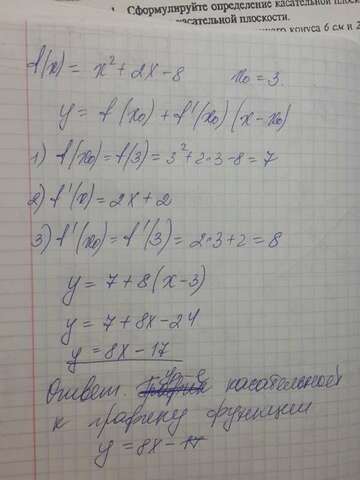 Сформулируйте определение касательной плоск
касательной плоскости.
конуса 6 см и 2
f(x) = x² + 2x - 8 x₀ = 3.
y = f(x₀) + f'(x₀)(x - x₀)
1) f(x₀) = f(3) = 3² + 2·3 - 8 = 7
2) f'(x) = 2x + 2
3) f'(x₀) = f'(3) = 2·3 + 2 = 8
y = 7 + 8(x - 3)
y = 7 + 8x - 24
y = 8x - 17
ур-е
Ответ. касательной
к графику функции
y = 8x - 17